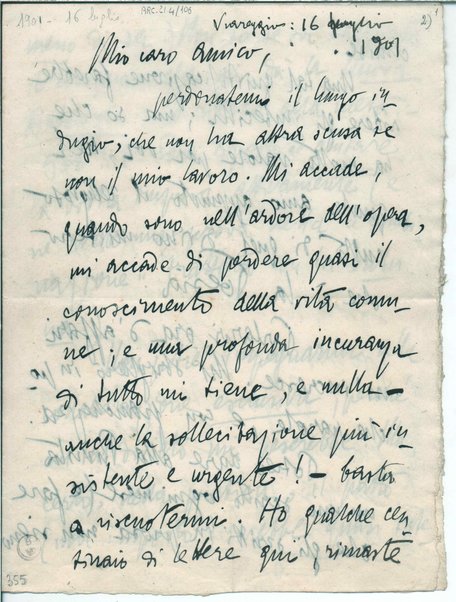 1901 - 16 luglio
ARC. 21.4/106
2)
Viareggio: 16 luglio
1901
Mio caro amico,
perdonatemi il lungo in
dugio, che non ha altra scusa se
non il mio lavoro. Mi accade,
quando sono nell'ardore dell'opera,
mi accade di perdere quasi il
conoscimento della vita comu-
ne; e una profonda incuranza
di tutto mi tiene, e nulla -
anche la sollecitazione più in
sistente e urgente! - basta
a riscuotermi. Ho qualche cen
tinaio di lettere qui, rimaste
355